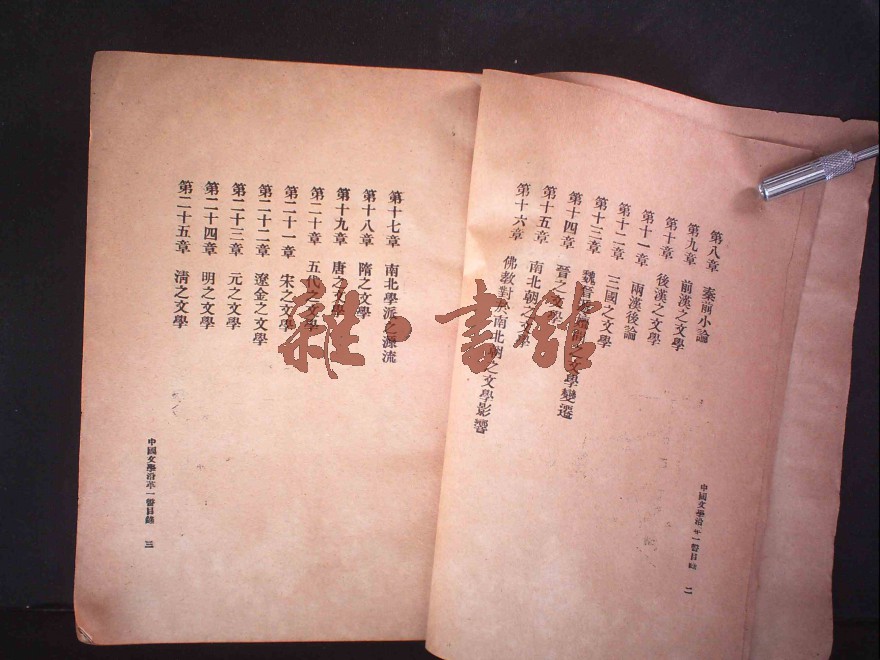 第八章　秦前小論
第九章　前漢之文學
第十章　後漢之文學
第十一章　兩漢後論
第十二章　三國之文學
第十三章　魏晉之文學變遷
第十四章　晉之文學
第十五章　南北朝之文學
第十六章　佛教對於南北朝之文學影響
中國文學沿革一瞥目錄　二
第十七章　南北學派之源流
第十八章　隋之文學
第十九章　唐之文學
第二十章　五代之文學
第二十一章　宋之文學
第二十二章　遼金之文學
第二十三章　元之文學
第二十四章　明之文學
第二十五章　清之文學
中國文學沿革一瞥目錄　三
雜·書館